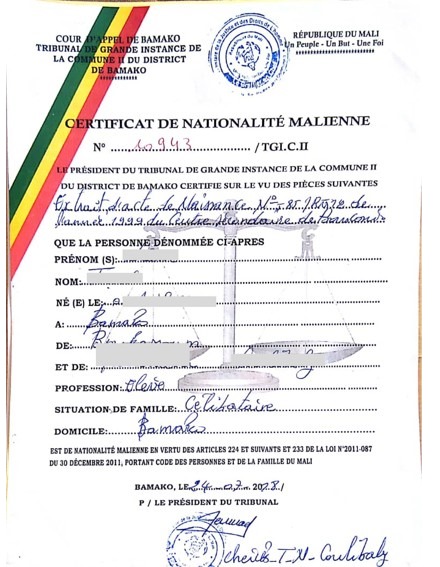 COUR D'APPEL DE BAMAKO
TRIBUNAL DE GRANDE INSTANCE DE
LA COMMUNE II DU DISTRICT
DE BAMAKO
RÉPUBLIQUE DU MALI
Un Peuple - Un But - Une Foi
CERTIFICAT DE NATIONALITÉ MALIENNE
N° 10943 /TGI.C.II
LE PRÉSIDENT DU TRIBUNAL DE GRANDE INSTANCE DE LA COMMUNE II
DU DISTRICT DE BAMAKO CERTIFIE SUR LE VU DES PIÈCES SUIVANTES
Extrait d'acte de Naissance N°
l'année 1999 du Centre secondaire de
QUE LA PERSONNE DÉNOMMÉE CI-APRES
PRÉNOM (S):
NOM:
NÉ (E) LE:
A: Bamako
DE:
ET DE:
PROFESSION: Elève
SITUATION DE FAMILLE: Célibataire
DOMICILE: Bamako
EST DE NATIONALITÉ MALIENNE EN VERTU DES ARTICLES 224 ET SUIVANTS ET 233 DE LA LOI N°2011-087
DU 30 DÉCEMBRE 2011, PORTANT CODE DES PERSONNES ET DE LA FAMILLE DU MALI
BAMAKO, LE 24.07.2018
P / LE PRÉSIDENT DU TRIBUNAL
Cheick-T-N-Coulibaly